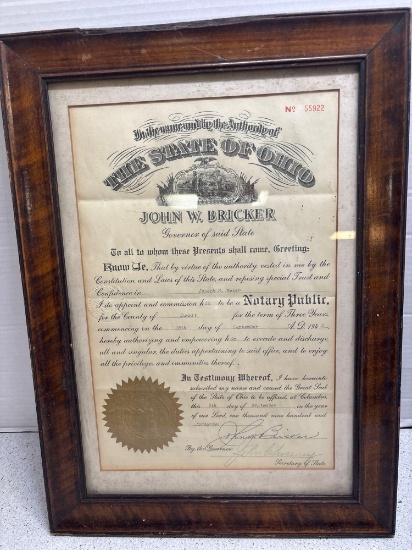 No 55922
In the name and by the Authority of
THE STATE OF OHIO
JOHN W. BRICKER
Governor of said State
To all to whom these Presents shall come, Greeting:
Know Ye, That by virtue of the authority vested in me by the
Constitution and Laws of this State, and reposing special Trust and
Confidence in
I do appoint and commission him to be a Notary Public,
for the County of for the term of Three Years,
commencing on the day of September A.D. 194
hereby authorizing and empowering him to execute and discharge
all and singular, the duties appertaining to said office, and to enjoy
all the privileges, and immunities thereof.
In Testimony Whereof, I have hereunto
subscribed my name and caused the Great Seal
of the State of Ohio to be affixed, at Columbus,
this day of September in the year
of our Lord, one thousand nine hundred and
John W. Bricker
By the Governor:
Secretary of State